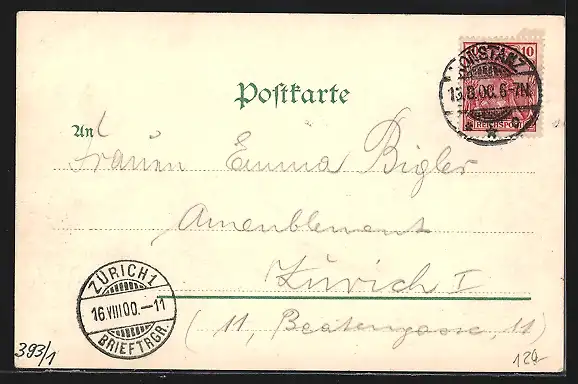 10
REICHSPOST
KONSTANZ
6-7N.
Postkarte
An
Emma Bigler
Ameublement
Zürich I
(11, Beatengasse, 11)
ZÜRICH 1
16.VIII.00.—11
BRIEFTRGR.
393/1
120